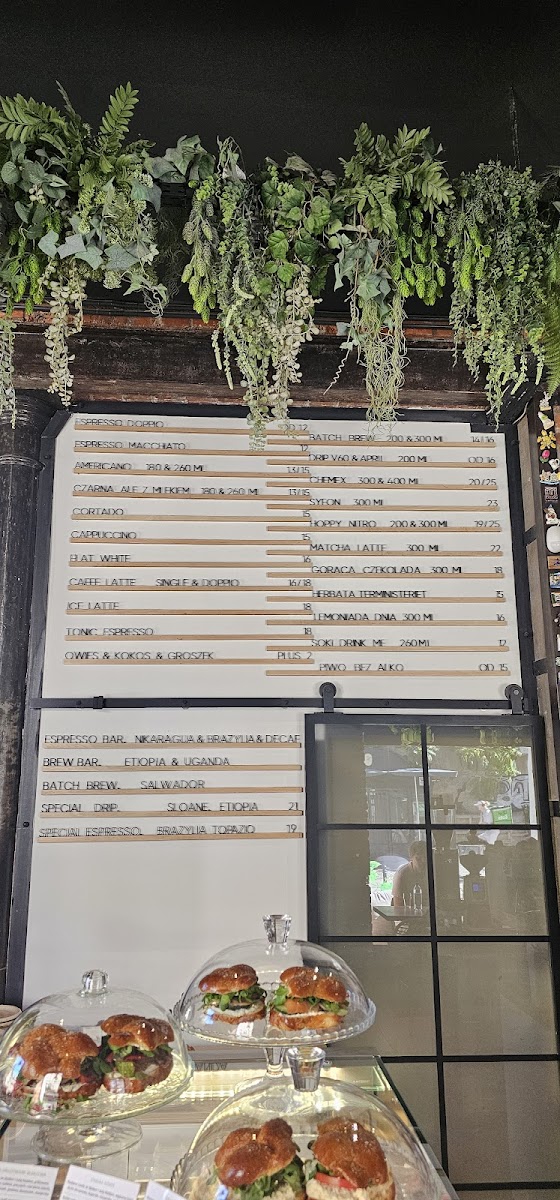 ESPRESSO DOPPIO OD 12
ESPRESSO MACCHIATO 12
AMERICANO 180 & 260 ML 13/15
CZARNA ALE Z MLEKIEM 180 & 260 ML 13/15
CORTADO 15
CAPPUCCINO 15
FLAT WHITE 16
CAFFE LATTE SINGLE & DOPPIO 16/18
ICE LATTE 18
TONIC ESPRESSO 18
OWIES & KOKOS & GROSZEK PLUS 2
BATCH BREW 200 & 300 ML 14/16
DRIP V60 & APRIL 200 ML OD 16
CHEMEX 300 & 400 ML 20/25
SYFON 300 ML 23
HOPPY NITRO 200 & 300 ML 19/25
MATCHA LATTE 300 ML 22
GORACA CZEKOLADA 300 ML 18
HERBATA TERMINISTERIET 15
LEMONIADA DNIA 300 ML 16
SOKI DRINK ME 260 ML 12
PIWO BEZ ALKO OD 15
ESPRESSO BAR. NIKARAGUA & BRAZYLIA & DECAF
BREW BAR. ETIOPIA & UGANDA
BATCH BREW. SALWADOR
SPECIAL DRIP. SLOANE, ETIOPIA 21
SPECIAL ESPRESSO. BRAZYLIA TOPAZIO 19